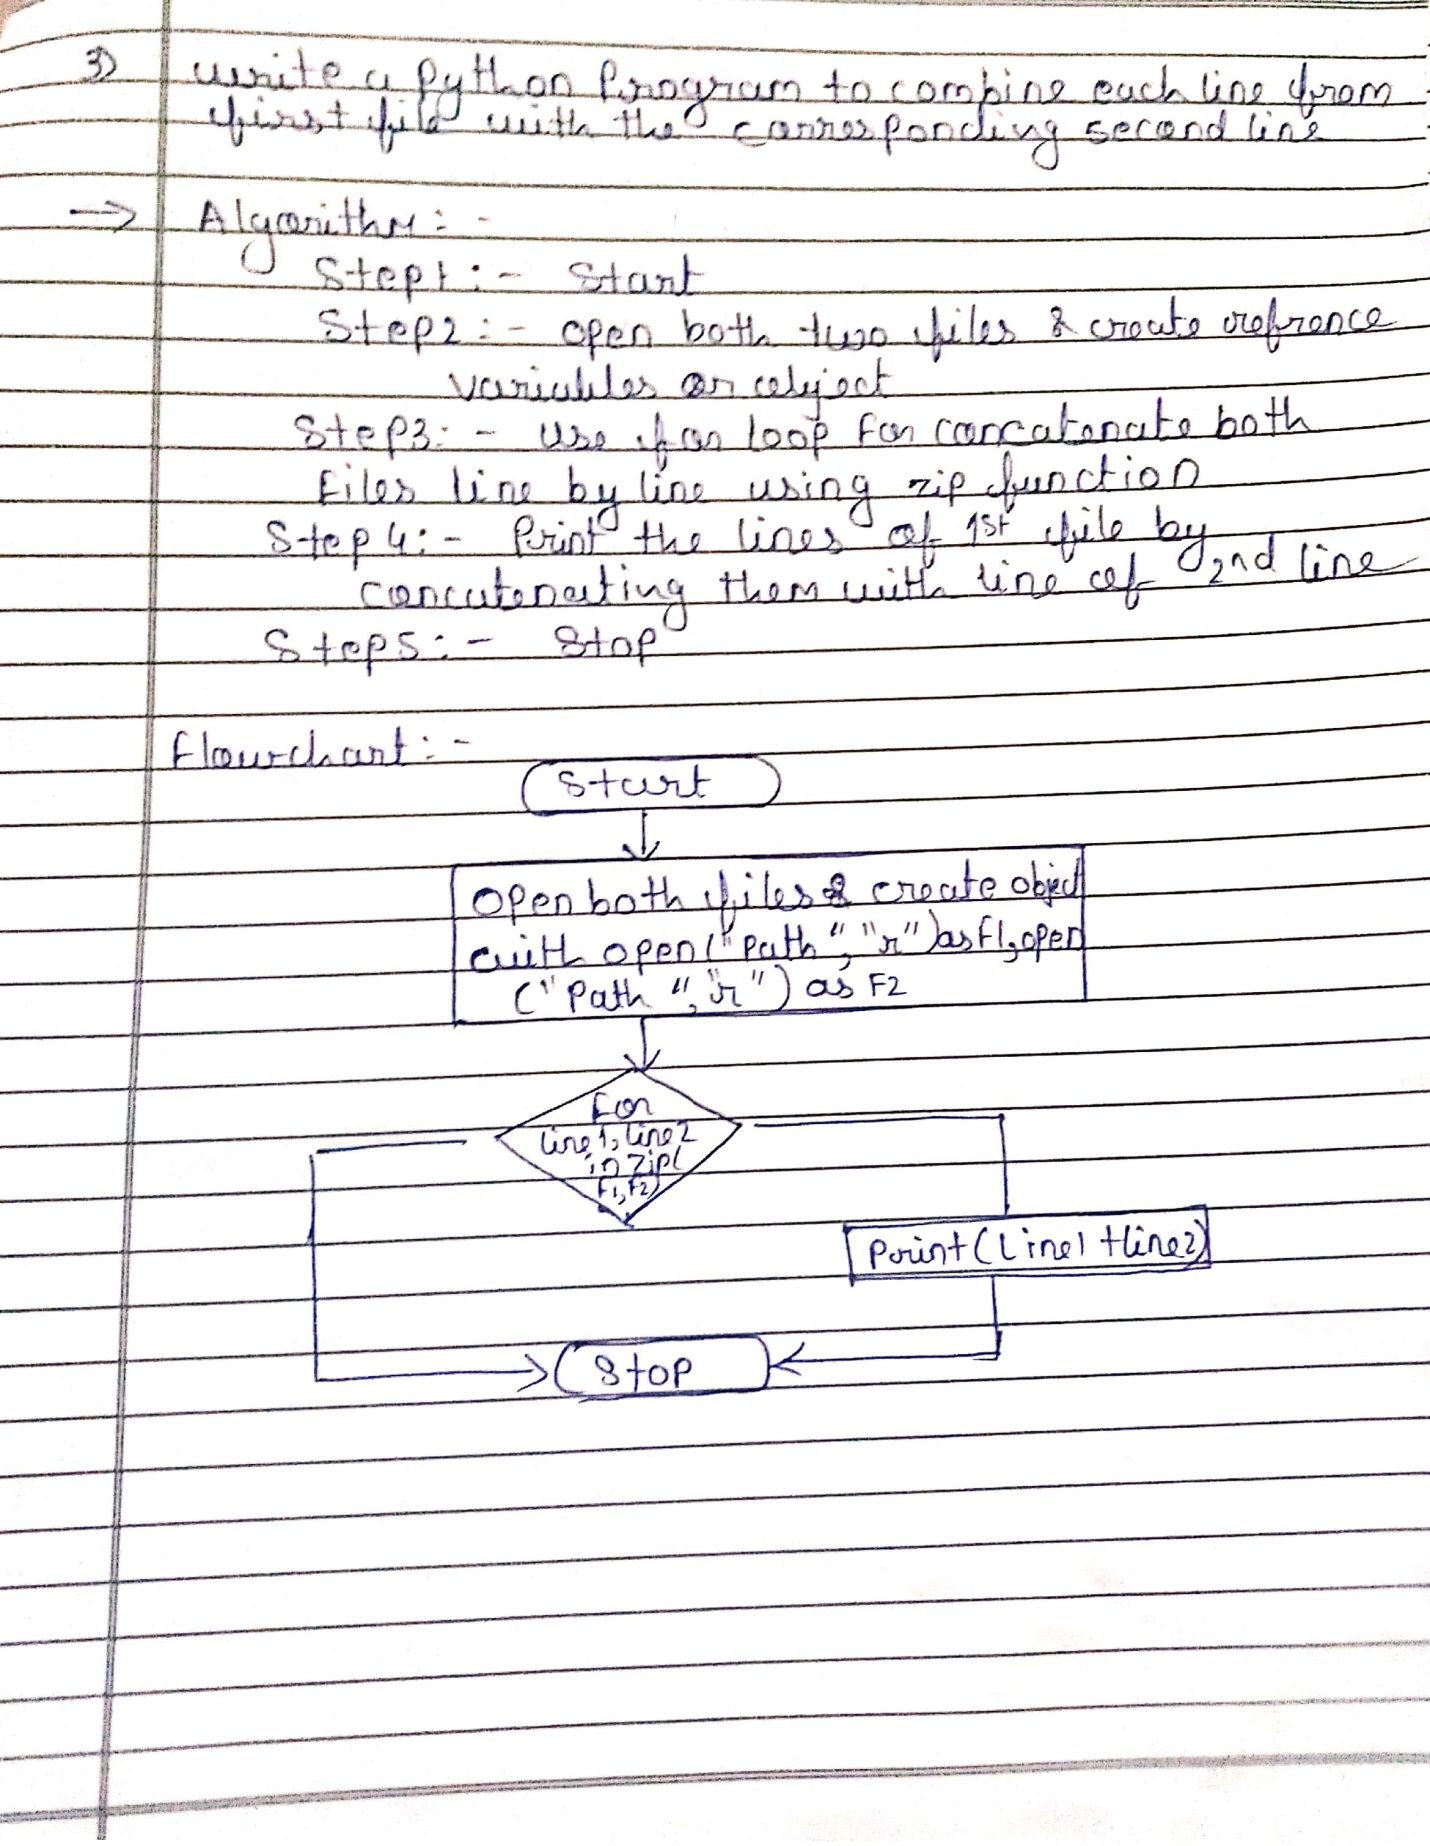 3) write a Python Program to combine each line from
first file with the corresponding second line
→ Algorithm :-
Step1 :- Start
Step2 :- open both two files & create refrence
variables or object
Step3 :- Use for loop for concatenate both
files line by line using zip function
Step 4:- Print the lines of 1st file by
concatenating them with line of 2nd line
Step5 :- Stop
Flowchart :-
Start
open both files & create object
with open("Path", "r") as F1, open
("Path", "r") as F2
For
line1, line2
in zip(
F1, F2)
Print(Line1 + line2)
Stop